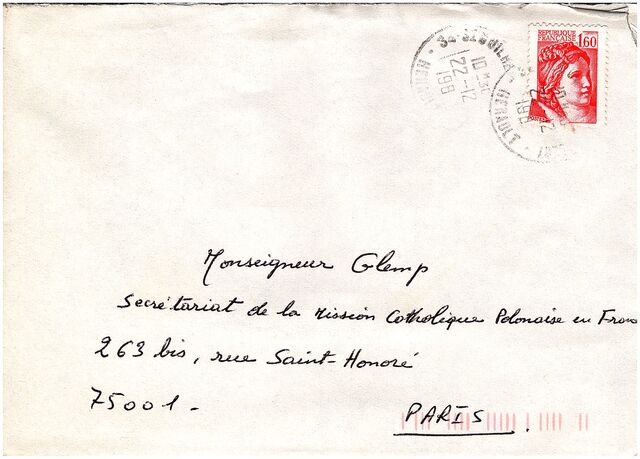 REPUBLIQUE
FRANÇAISE 1,60
10 H
22-12
198
HERAULT
Monseigneur Glemp
Secrétariat de la Mission Catholique Polonaise en Fran
263 bis, rue Saint-Honoré
75001-
PARIS.